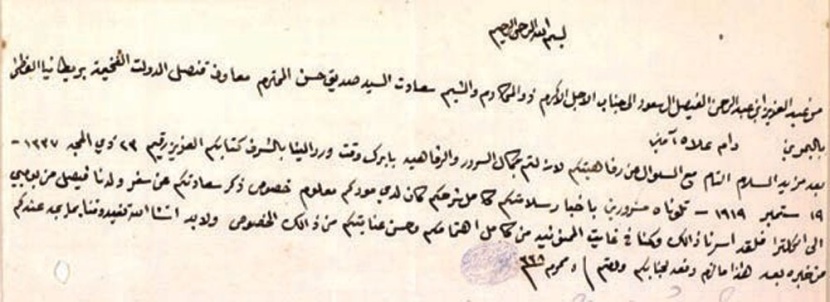 بسم الله الرحمن الرحيم
من عبد العزيز ابن عبد الرحمن الفيصل ال سعود الى جناب الاجل الاكرم ذو المكارم والشيم سعادت السيد صديق حسن المحترم معاون قنصل الدولت الفخيمة بريطانيا العظمى
بالبحرين دام علاه امين
بعد مزيد السلام التام مع السؤال عن رفاهيتكم لازلتم بكمال السرور والرفاهيه بابرك وقت ورد الينا بالشرف كتابكم العزيز رقيم ٢٣ ذي الحجه ١٣٣٧ -
١٩ ستمبر ١٩١٩ - تلوناه مسرورين باخبار سلامتكم كامل شرحكم كان لدى مودكم معلوم خصوص ذكر سعادتكم عن سفر ولدنا فيصل من بومبي
الى انكلترا فلقد اسرنا ذالك وكنا في غايت الممنونيه من كامل اهتمامكم وحسن عنايتكم من ذالك الخصوص ولابد انشا الله تفيدوننا بما يجد عندكم
من خبره بعد هذا مالزم رفعه لجنابكم ودمتم محرم